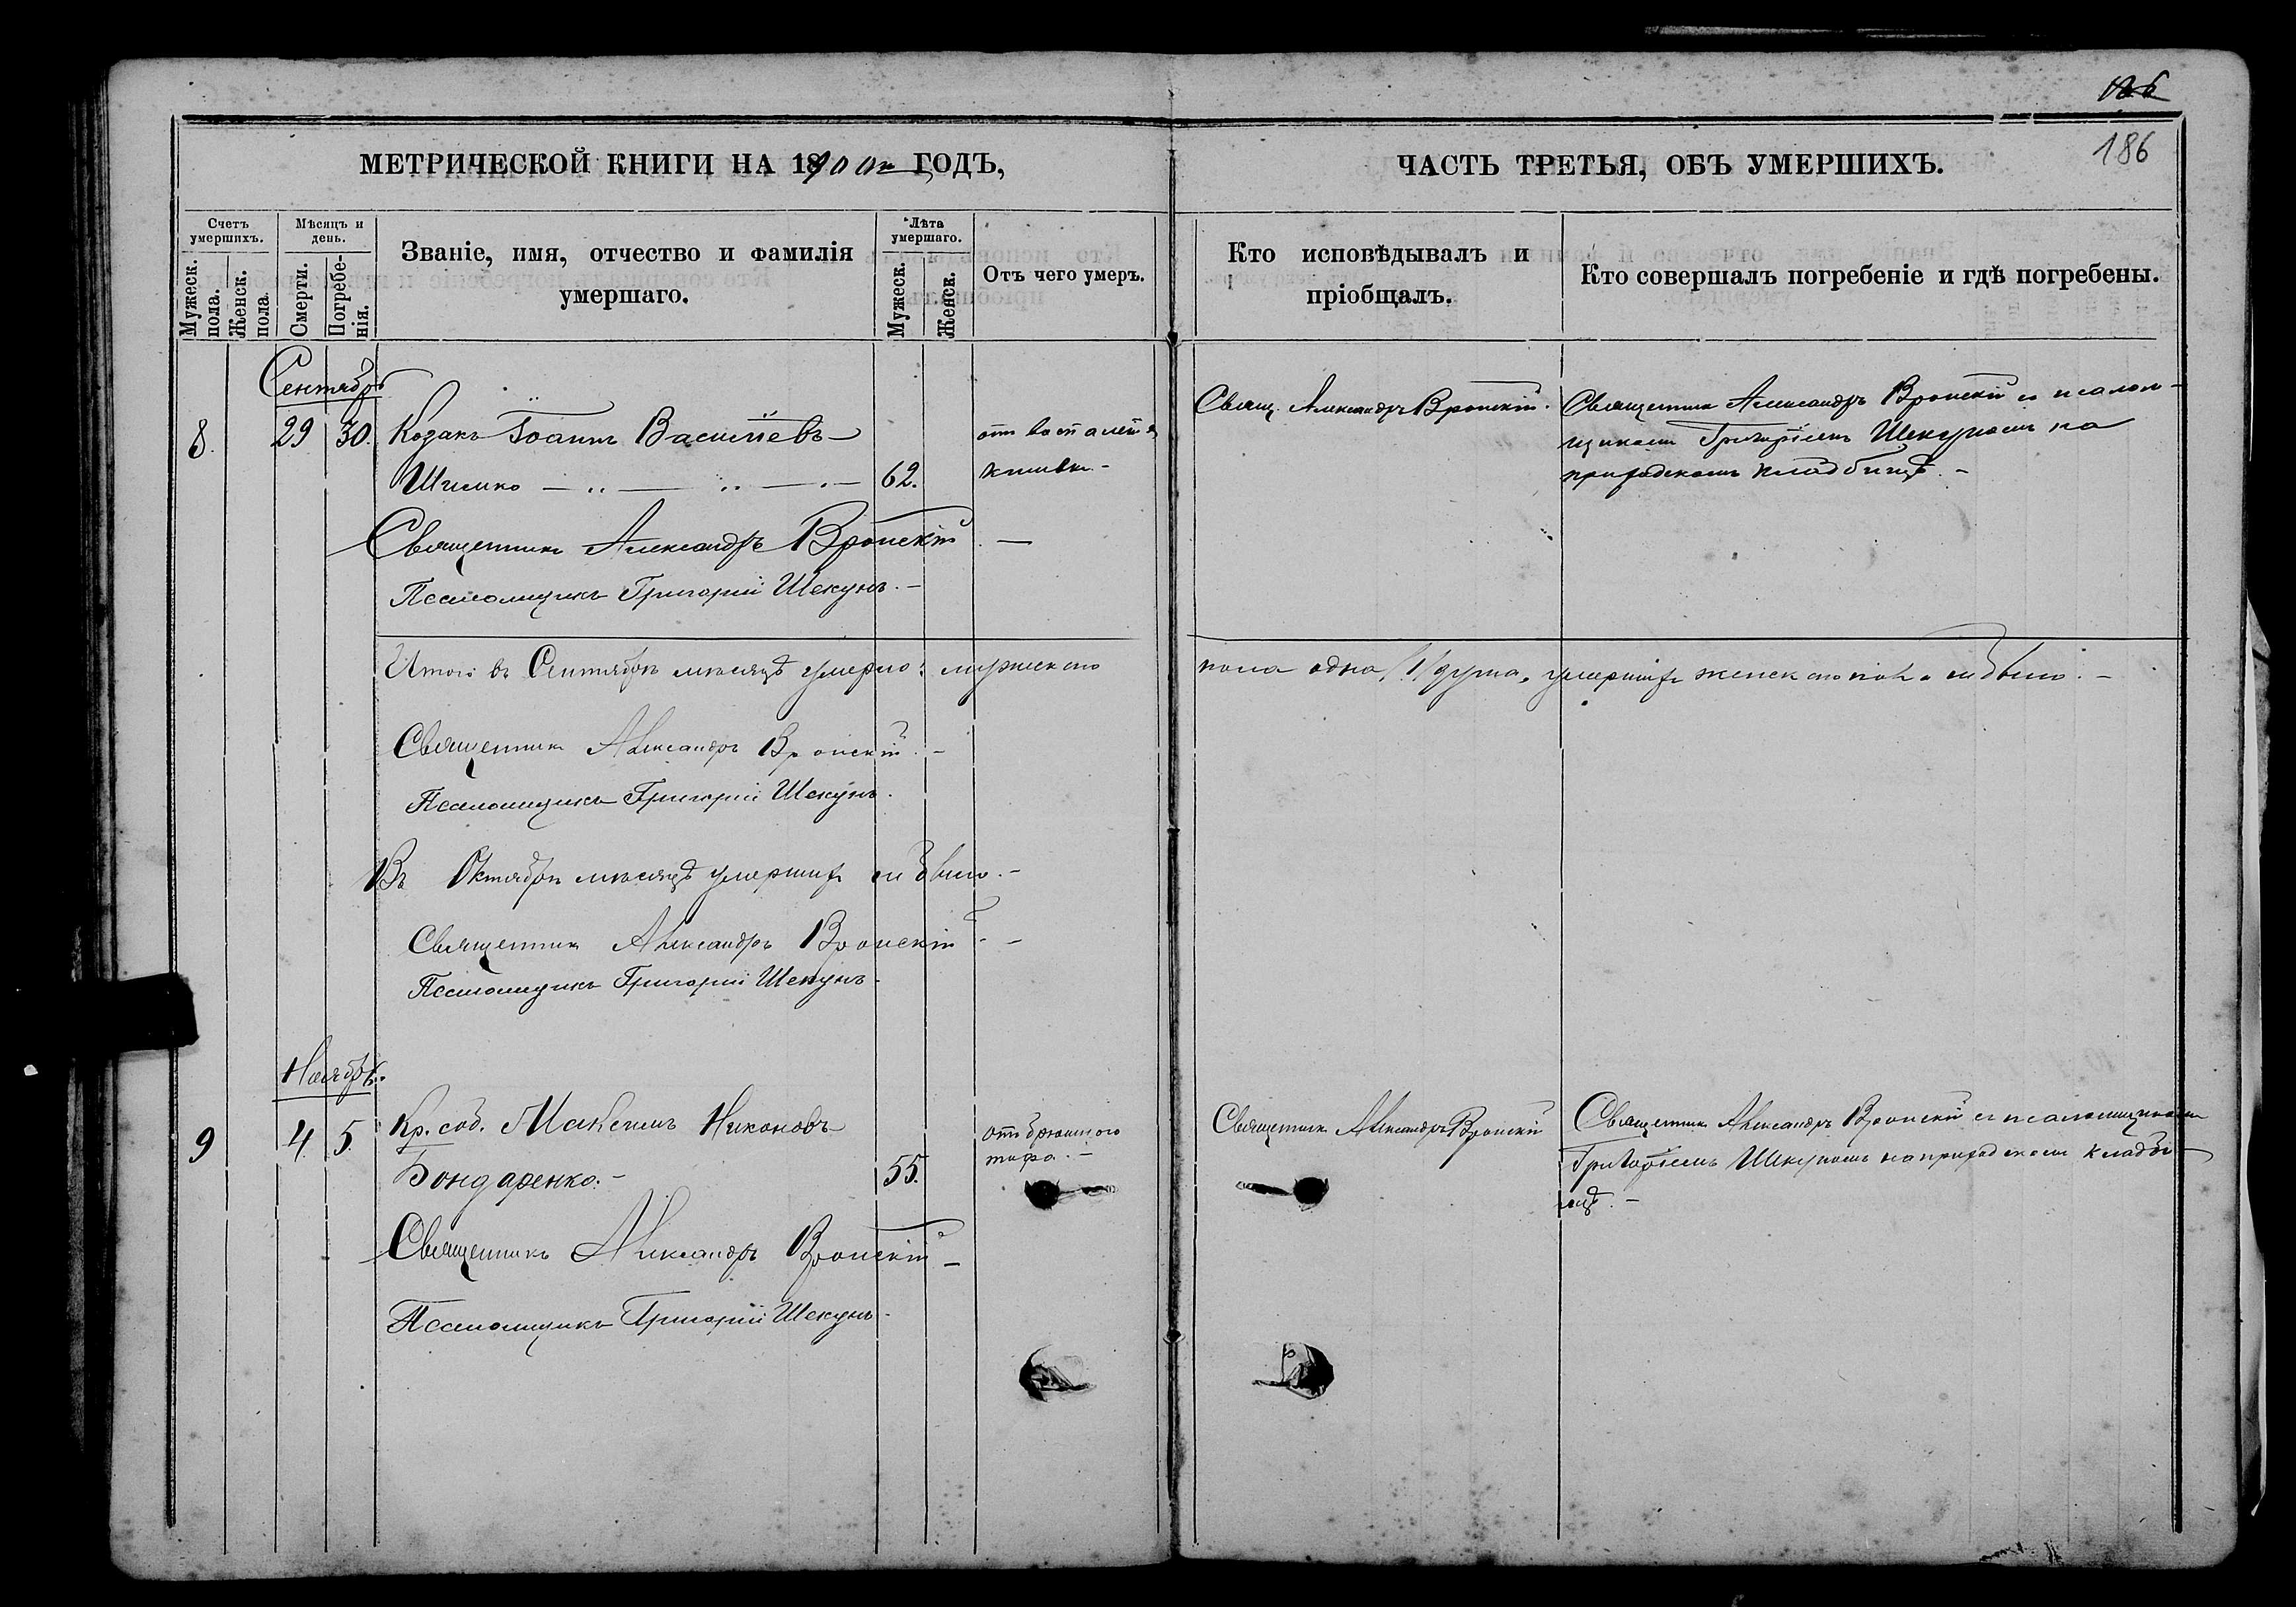 186
186
МЕТРИЧЕСКОЙ КНИГИ НА 1900й ГОДЪ,
ЧАСТЬ ТРЕТЬЯ, ОБЪ УМЕРШИХЪ.
Счетъ умершихъ.
Мужеск. пола.
Женск. пола.
Мѣсяцъ и день.
Смерти.
Погребенія.
Званіе, имя, отчество и фамилія
умершаго.
Лѣта умершаго.
Мужеск.
Женск.
Отъ чего умеръ.
Кто исповѣдывалъ и
пріобщалъ.
Кто совершалъ погребеніе и гдѣ погребены.
Сентябрь
8. 29 30. Козакъ Іоаннъ Васильевъ
62.
отъ воспаленія
Свящ. Александръ Вронскій.
Священникъ Александръ Вронскій съ псалом-
щикомъ Григоріемъ Шекуномъ на
приходскомъ кладбищѣ. -
Священникъ Александръ Вронскій -
Псаломщикъ Григорій Шекунъ. -
Итого въ Сентябрѣ мѣсяцѣ умерло: мужеского
пола одна /1/ душа, умершихъ женского пола не было. -
Священникъ Александръ Вронскій. -
Псаломщикъ Григорій Шекунъ.
Въ Октябрѣ мѣсяцѣ умершихъ не было. -
Священникъ Александръ Вронскій -
Псаломщикъ Григорій Шекунъ. -
Ноябрь.
9 4. 5. Кр. соб. Максимъ Никоновъ
Бондаренко. - 55.
отъ брюшного
тифа. -
Священникъ Александръ Вронскій
Священникъ Александръ Вронскій съ псаломщикомъ
Григоріемъ Шекуномъ на приходскомъ кладби-
щѣ. -
Священникъ Александръ Вронскій -
Псаломщикъ Григорій Шекунъ -